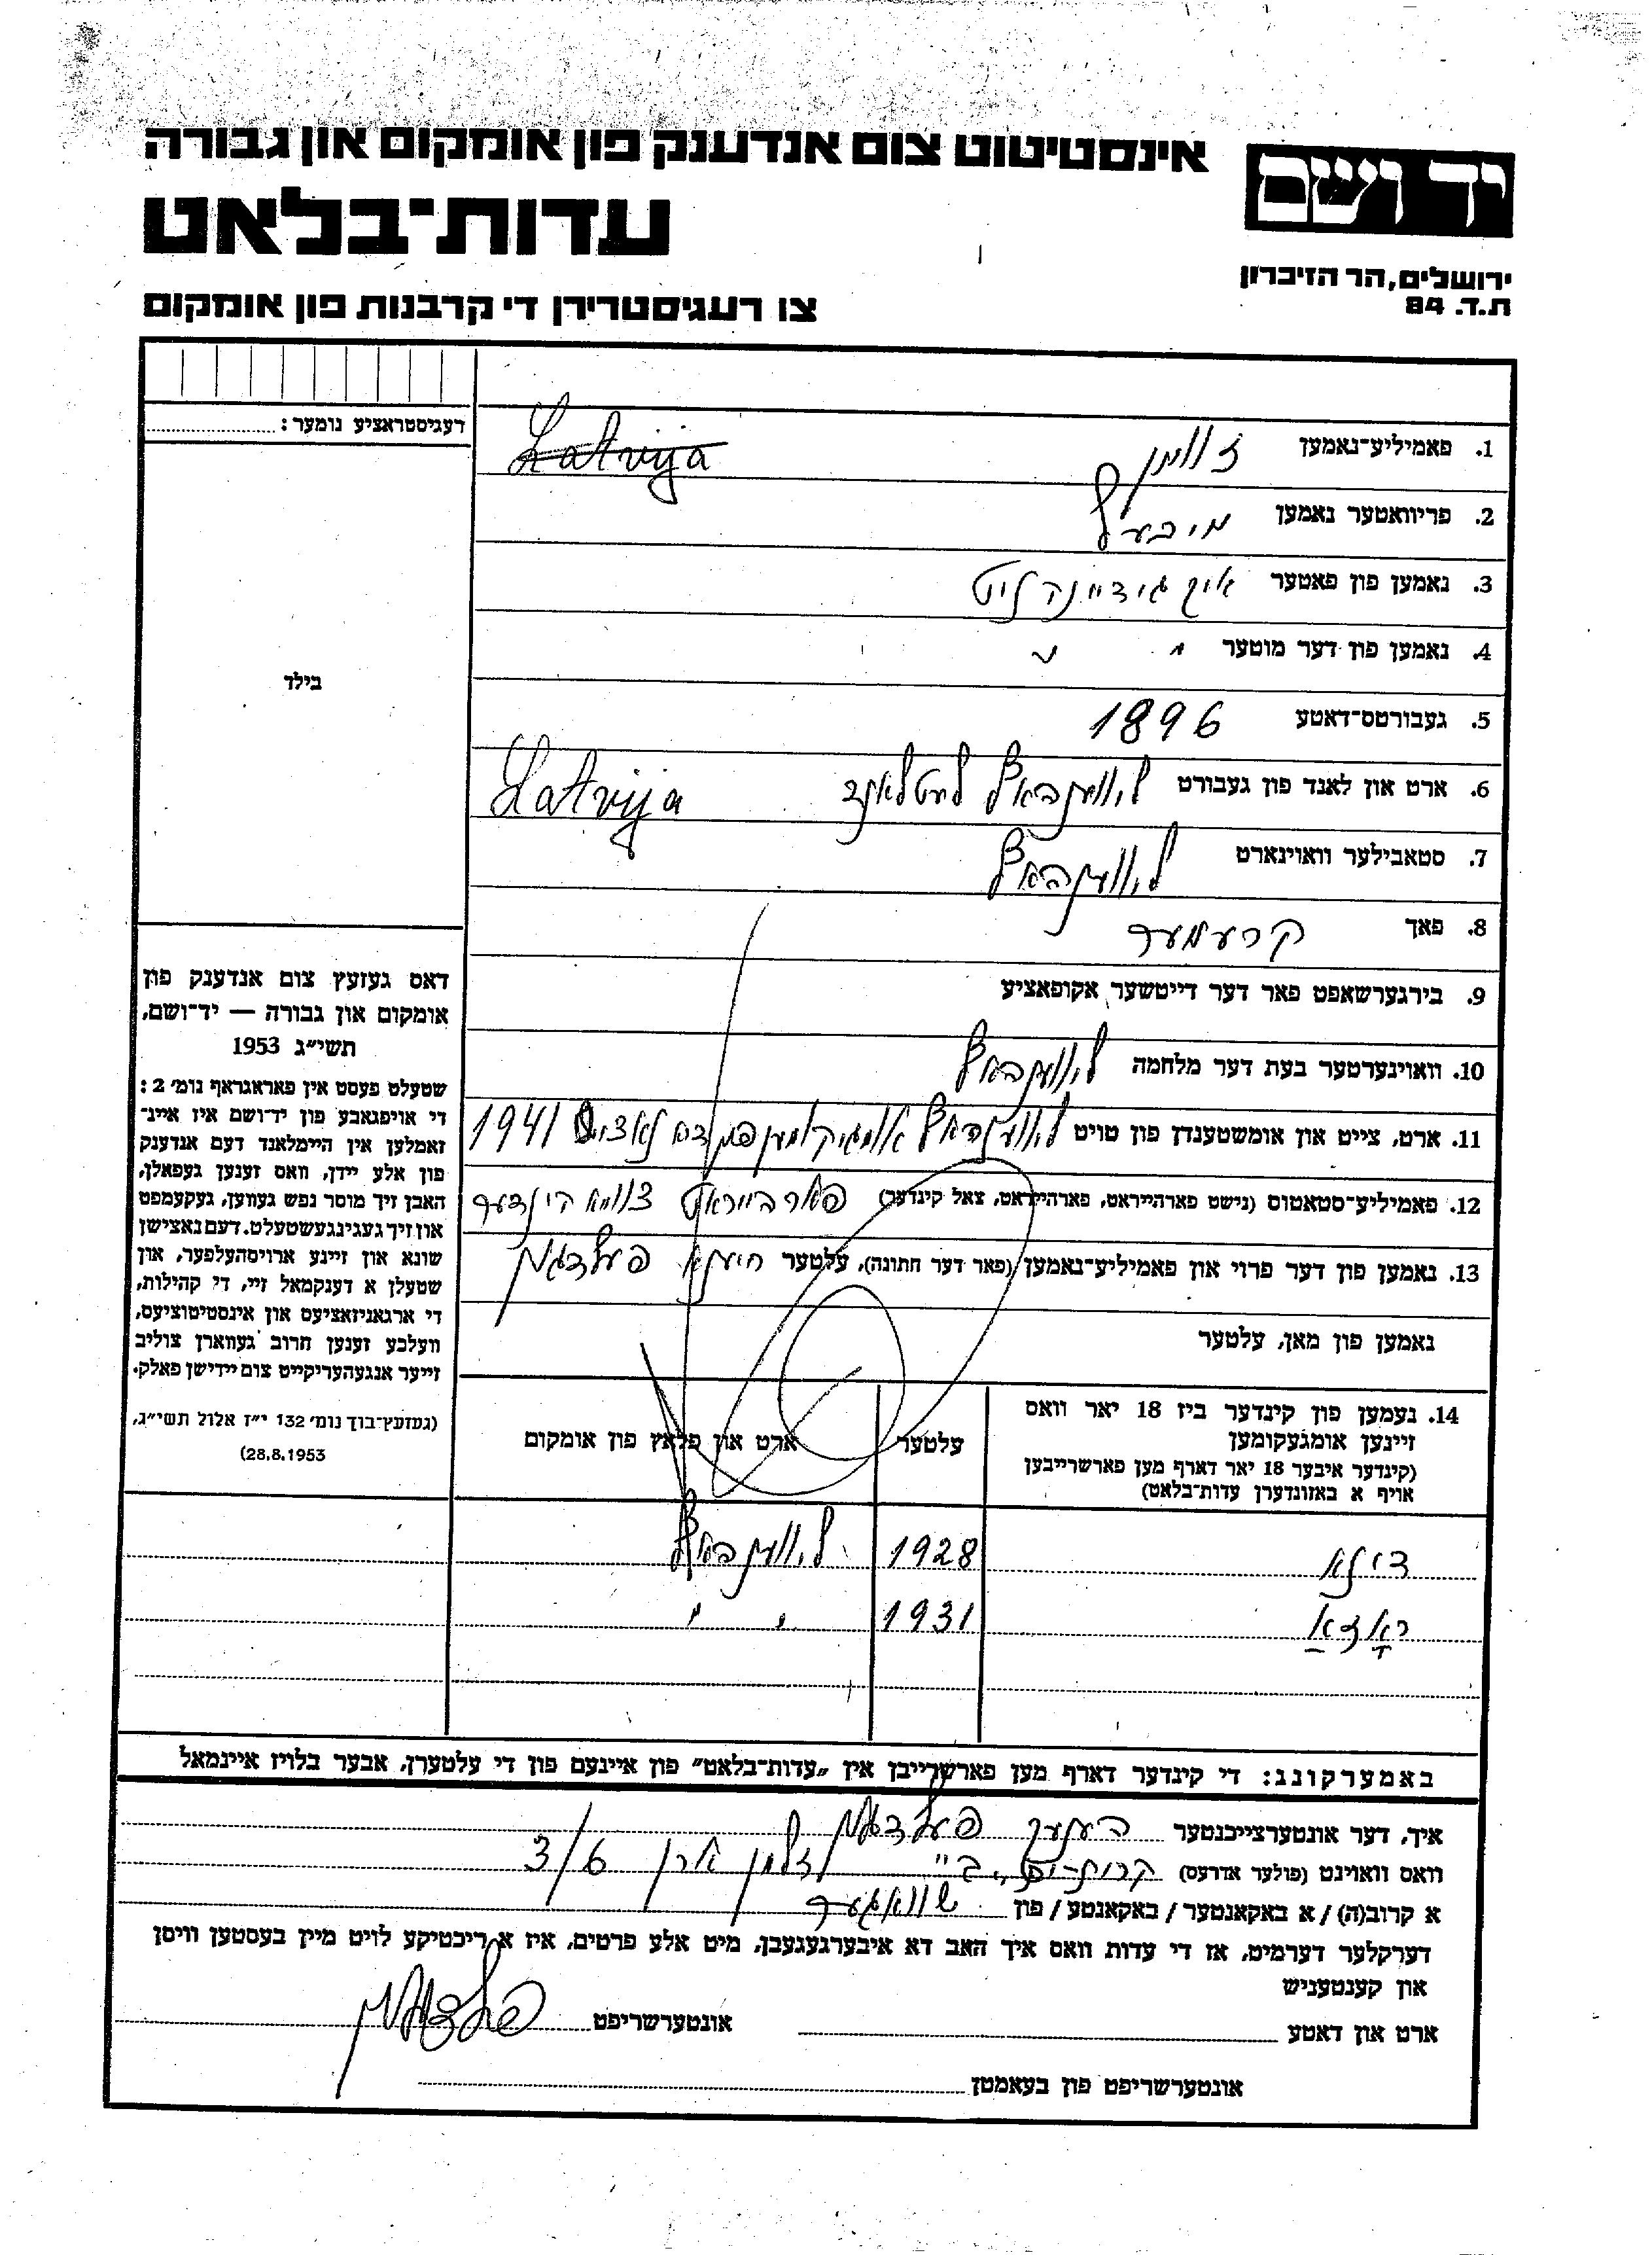 יד ושם
אינסטיטוט צום אנדענק פון אומקום און גבורה
עדות־בלאט
ירושלים, הר הזיכרון
ת.ד. 84
צו רעגיסטרירן די קרבנות פון אומקום
רעגיסטראציע נומער:
בילד
1. פאמיליע־נאמען
Latvija
2. פריוואטער נאמען מיכעל
3. נאמען פון פאטער איך געדיינק ניט
4. נאמען פון דער מוטער " "
5. געבורטס־דאטע 1896
6. ארט און לאנד פון געבורט ליווענהאף לעטלאנד Latvija
7. סטאבילער וואוינארט ליווענהאף
8. פאך קרעמער
9. בירגערשאפט פאר דער דייטשער אקופאציע
10. וואוינערטער בעת דער מלחמה ליווענהאף
11. ארט, צייט און אומשטענדן פון טויט ליווענהאף אומגעקומען 1941
12. פאמיליע־סטאטוס (נישט פארהייראט, פארהייראט, צאל קינדער) פארהייראט צוויי קינדער
13. נאמען פון דער פרוי און פאמיליע־נאמען (פאר דער חתונה), עלטער פעלדמאן
נאמען פון מאן, עלטער
14. נעמען פון קינדער ביז 18 יאר וואס
זיינען אומגעקומען
(קינדער איבער 18 יאר דארף מען פארשרייבן
אויף א באזונדערן עדות־בלאט)
עלטער
ארט און פלאץ פון אומקום
1928 ליווענהאף
ראזא 1931 " "
דאס געזעץ צום אנדענק פון
אומקום און גבורה — יד־ושם,
תשי״ג 1953
שטעלט פעסט אין פאראגראף נומ׳ 2:
די אויפגאבע פון יד־ושם איז איינ־
זאמלען אין היימלאנד דעם אנדענק
פון אלע יידן, וואס זענען געפאלן,
האבן זיך מוסר נפש געווען, געקעמפט
און זיך געגינגעשטעלט. דעם נאצישן
שונא און זיינע ארויסהעלפער, און
שטעלן א דענקמאל זיי, די קהילות,
די ארגאניזאציעס און אינסטיטוציעס,
וועלכע זענען חרוב געווארן צוליב
זייער אנגעהעריקייט צום יידישן פאלק.
(געזעץ־בוך נומ׳ 132 י״ז אלול תשי״ג,
28.8.1953)
באמערקונג: די קינדער דארף מען פארשרייבן אין „עדות־בלאט״ פון איינעם פון די עלטערן, אבער בלויז איינמאל
איך, דער אונטערצייכנטער העניך פעלדמאן
וואס וואוינט (פולער אדרעס) קרית־ים ״ב״ זלמן ארן 3/6
א קרוב(ה) / א באקאנטער / באקאנטע / פון שוואגער
דערקלער דערמיט, אז די עדות וואס איך האב דא איבערגעגעבן, מיט אלע פרטים, איז א ריכטיקע לויט מיין בעסטען וויסן
און קענטעניש
ארט און דאטע אונטערשריפט פעלדמאן
אונטערשריפט פון בעאמטן